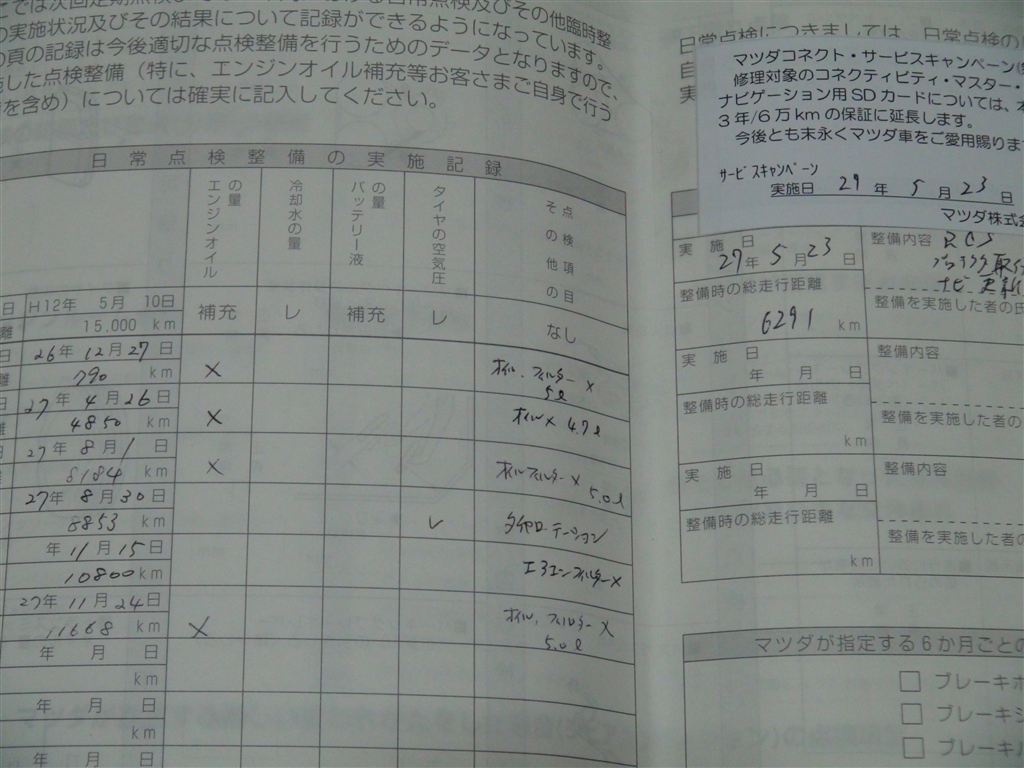 では次回定期点検
の実施状況及びその結果について記録ができるようになっています。
の頁の記録は今後適切な点検整備を行うためのデータとなりますので、
した点検整備（特に、エンジンオイル補充等お客さまご自身で行う
を含め）については確実に記入してください。
日常点検整備の実施記録
エンジンオイルの量
冷却水の量
バッテリー液の量
タイヤの空気圧
その他の点検項目
日 H12年 5月 10日
離 15,000 km
補充 レ 補充 レ なし
日 26年 12月 27日
離 790 km
× オイル、フィルター ×
5ℓ
27年 4月 26日
4850 km
× オイル× 4.7ℓ
27年 8月 1日
8184 km
× オイルフィルター ×
5.0ℓ
27年 8月 30日
8853 km
レ タイヤローテーション
年 11月 15日
10800 km
エアエンフィルター×
27年 11月 24日
11668 km
× オイル、フィルター ×
5.0ℓ
年 月 日
km
年 月 日
km
年 月 日
日常点検につきましては、日常点検の
マツダコネクト・サービスキャンペーン
修理対象のコネクティビティ・マスター・
ナビゲーション用SDカードについては、
3年/6万kmの保証に延長します。
今後とも末永くマツダ車をご愛用賜りま
サービスキャンペーン
実施日 27年 5月 23日
マツダ株式会
実施日
27年 5月 23日
整備内容
取付
ナビ更新
整備時の総走行距離
6291 km
整備を実施した者の氏
実施日
年 月 日
整備内容
整備時の総走行距離
km
整備を実施した者の
実施日
年 月 日
整備内容
整備時の総走行距離
km
整備を実施した者の
マツダが指定する6か月ごとの
ブレーキホ
ブレーキシ
ブレーキパ